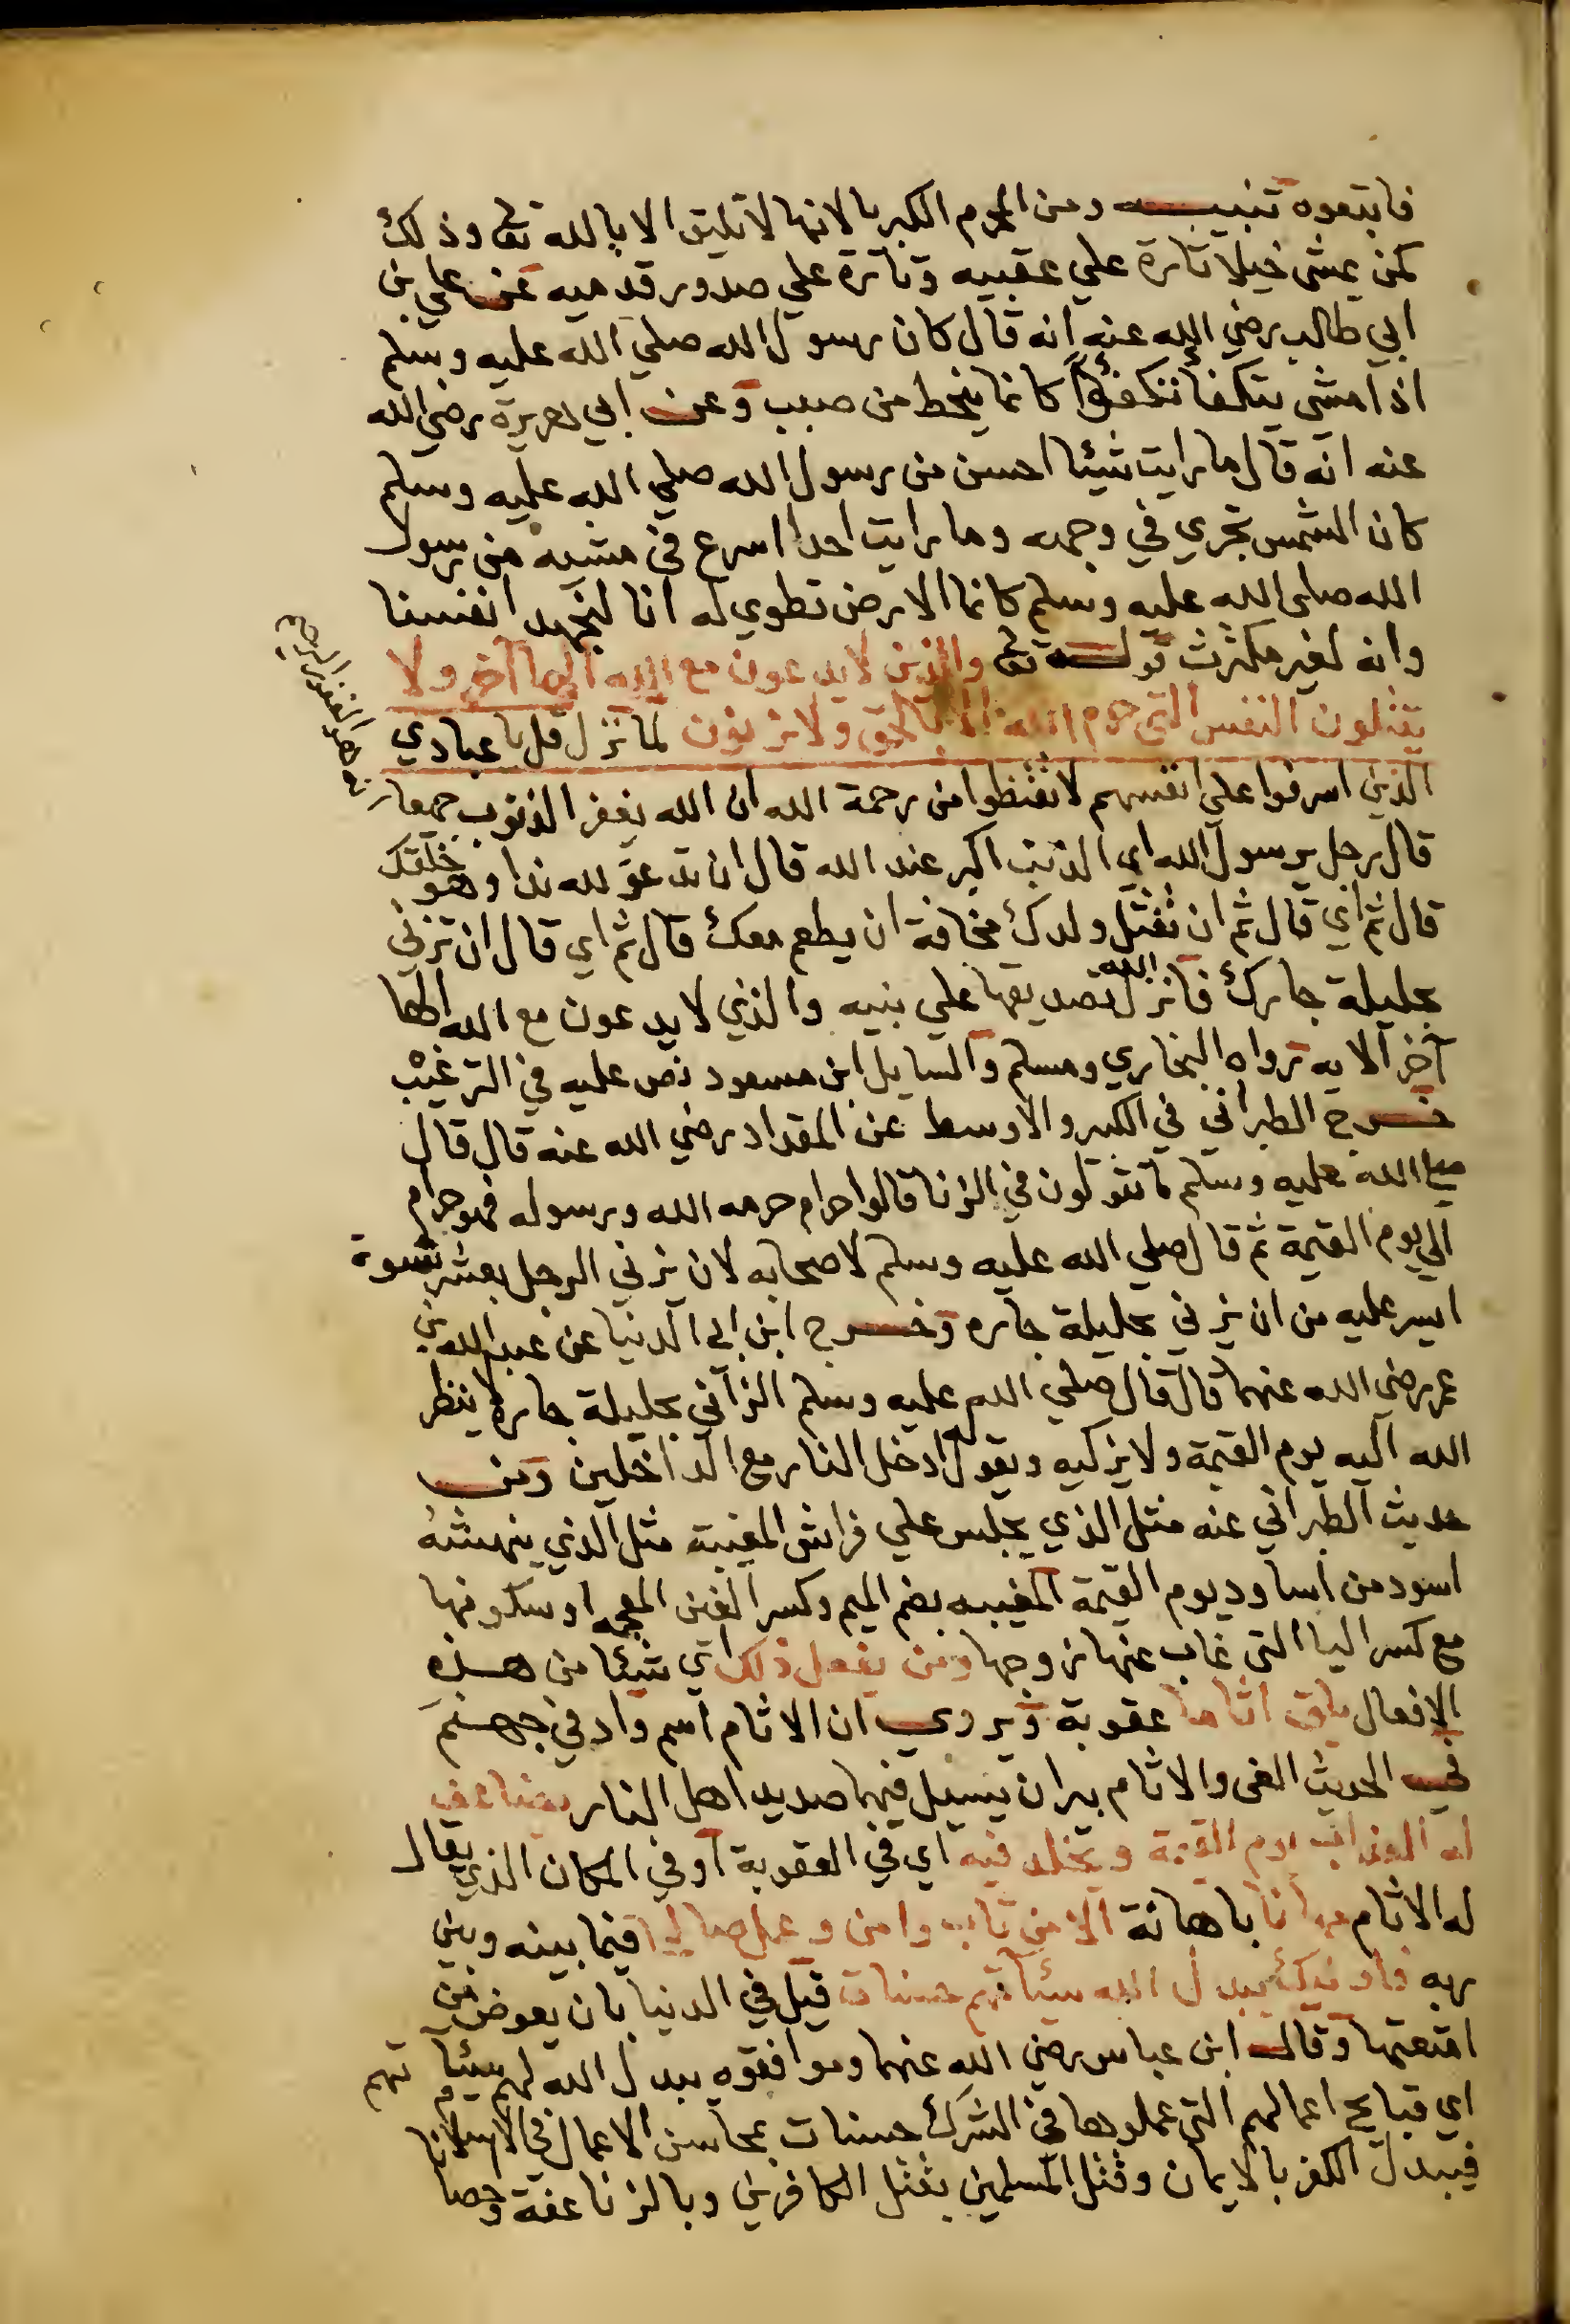 فابتعوه تنبيه ومن المحرم الكبريا لانها لا تليق الا بالله تعا وذلك
كمن يمشي خيلا تارة علي عقبيه وتارة علي صدور قدميه عن علي بن
ابي طالب رضي الله عنه انه قال كان رسول الله صلي الله عليه وسلم
اذا مشي يتكفأ تكفؤاً كانما ينحط من صبب وعن ابي هريرة رضي الله
عنه انه قال ما رايت شيئا احسن من رسول الله صلي الله عليه وسلم
كان الشمس تجري في وجهه وما رايت احدا اسرع في مشيه من رسول
الله صلى الله عليه وسلم كانما الارض تطوي له انا لنجهد انفسنا
وانه لغير مكترث قوله تعا والذين لا يدعون مع الله الها آخر ولا
يقتلون النفس التي حرم الله الا بالحق ولا يزنون لما نزل قل يا عبادي
الذين اسرفوا علي انفسهم لا تقنطوا من رحمة الله ان الله يغفر الذنوب جميعا
انه هو الغفور الرحيم
قال رجل يرسول الله اي الذنب اكبر عند الله قال ان تدعو لله ندا وهو خلقك
قال ثم اي قال ثم ان تقتل ولدك مخافة ان يطعم معك قال ثم اي قال ان تزني
بحليلة جارك فانزل الله تصديقها علي نبيه والذين لا يدعون مع الله الها
آخر الايه رواه البخاري ومسلم والسايل ابن مسعود نص عليه في الترغيب
خرج الطبراني في الكبير والاوسط عن المقداد رضي الله عنه قال قال
صلي الله عليه وسلم ما تقولون في الزنا قالوا حرام حرمه الله ورسوله فهو حرام
الي يوم القيمة ثم قال صلي الله عليه وسلم لاصحابه لان يزني الرجل بعشر نسوة
ايسر عليه من ان يزني بحليلة جاره وخرج ابن ابي الدنيا عن عبد الله بن
عمر رضي الله عنهما قال قال صلي الله عليه وسلم الزاني بحليلة جاره لا ينظر
الله اليه يوم القيمة ولا يزكيه ويقول ادخل النار مع الداخلين ومن
حديث الطبراني عنه مثل الذي يجلس علي فراش المغيبة مثل الذي ينهشه
اسود من اساود يوم القيمة المغيبه بضم الميم وكسر الغين المعجمه او سكونها
مع كسر اليا التي غاب عنها زوجها ومن يفعل ذلك اي شيئا من هذه
الافعال يلق اثاما عقوبة ويروي ان الاثام اسم واد في جهنم
في الحديث الغي والاثام بيران يسيل فيهما صديد اهل النار يضاعف
له العذاب يوم القيمة ويخلد فيه اي في العقوبة او في المكان الذي يقال
له الاثام مهانا باهانة الا من تاب وامن وعمل صالحا فيما بينه وبين
ربه فاولئك يبدل الله سيئاتهم حسنات قيل في الدنيا بان يعوض من
اقتعتها وقال ابن عباس رضي الله عنهما وموافقوه يبدل الله لهم سيئاتهم
اي قبايح اعمالهم التي عملوها في الشرك حسنات بمحاسن الاعمال في الاسلام
فيبدل الكفر بالايمان وقتل المسلمين بقتل الكافرين وبالزنا عفة وحصانا